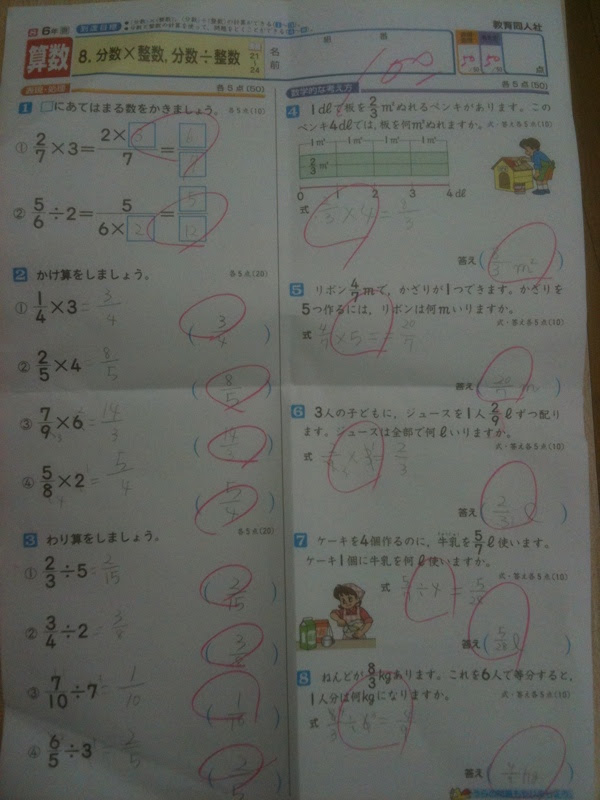 6年
教育同人社
算数
8. 分数×整数, 分数÷整数
21
24
名前
組 番
100
50 50
点
各5点(50)
1 □にあてはまる数をかきましょう。 各5点(10)
① 2/7×3=2×3/7=6/7
② 5/6÷2=5/6×2=5/12
2 かけ算をしましょう。 各5点(20)
① 1/4×3=3/4 (3/4)
② 2/5×4=8/5 (8/5)
③ 7/9×6=14/3 (14/3)
④ 5/8×2=5/4 (5/4)
3 わり算をしましょう。 各5点(20)
① 2/3÷5=2/15 (2/15)
② 3/4÷2=3/8 (3/8)
③ 7/10÷7=1/10 (1/10)
④ 6/5÷3=2/5 (2/5)
数学的な考え方 各5点(50)
4 1dlで板を2/3m²ぬれるペンキがあります。この
ペンキ4dlでは,板を何m²ぬれますか。 式・答え各5点(10)
1m² 1m² 1m² 1m²
2/3m²
0 1 2 3 4dl
式 2/3×4=8/3
答え( /3 m²)
5 リボン4/7mで,かざりが1つできます。かざりを
5つ作るには,リボンは何mいりますか。
式・答え各5点(10)
式 4/7×5=20/7
答え(20/7 m)
6 3人の子どもに,ジュースを1人2/9lずつ配り
ます。ジュースは全部で何lいりますか。
式・答え各5点(10)
式 ×=2/3
答え(2/3 l)
7 ケーキを4個作るのに,牛乳を5/7l使います。
ケーキ1個に牛乳を何l使いますか。
式・答え各5点(10)
式 5/7÷4=5/28
答え(5/28 l)
8 ねんどが8/3kgあります。これを6人で等分すると,
1人分は何kgになりますか。 式・答え各5点(10)
式 8/3÷6=4/9
答え(4/9 kg)